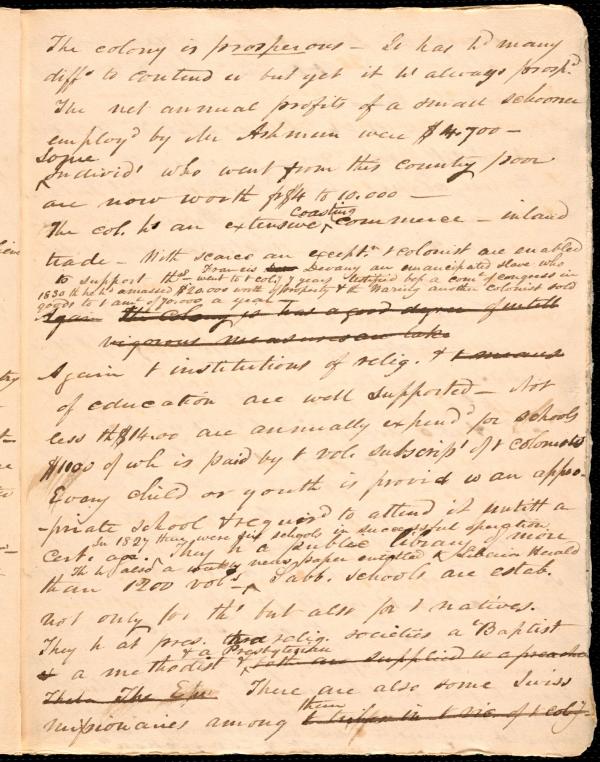 The colony is prosperous – It has hd many
diffs to contend w but yet it hs always prospd.
The net annual profits of a small schooner
employd by Mr Ashmun were $4.700 –
Some
individs who went from this country poor
are now worth fr $4 to 10.000 –
coasting
The col. hs an extensive commerce – inland
trade – With scarce an exceptn t colonist are enabled
to support ths. Francis Devany an emancipated slave who
went to t coly 7 years testified bef a come of congress in
1830 th he hs amassed $20.000 worth of property & th Waring another colonist sold
goods to t amt of 70.000 a year
Again the colony is has a good degree of untill
vigorous measures are take
Again t institutions of relig. & t means
of education are well supported – Not
less th $1400 are annually expendd for schools
$1100 of wh is paid by t vol. subscripts of t colonists
Every child or youth is provid w an appro-
-priate school & requird to attend it untill a
In 1827 they were six schools in successful operation
cert. age. They h a public library of more
Th h also a weekly news paper entitled Liberia Herald
than 1200 vols – Sabb. schools are estab.
not only for ths but also for t natives.
They h at pres. relig. societies a Baptist
& a Presbyterian
& a methodist & both are supplied w a preacher
The Epis There are also some Swiss
them
missionaries among t tribes in t vic. of t coly –